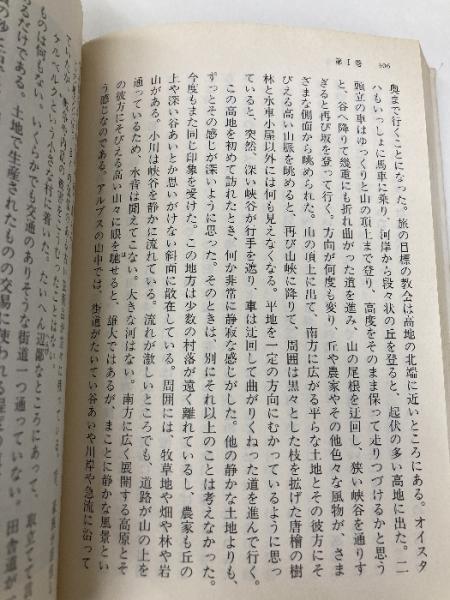 第Ⅰ巻
306
奥まで行くことになった。旅の目標の教会は高地の北端に近いところにある。オイスタ
ハもいっしょに馬車に乗り、河岸から段々状の丘を登ると、起伏の多い高地に出た。二
頭立の車はゆっくりと山の頂上まで登り、高度をそのまま保って走りつづけるかと思う
と、谷へ降りて幾重にも折れ曲がった道を進み、山の尾根を迂回し、狭い峡谷を通りす
ぎると再び坂を登って行く。方向が何度も変り、丘や農家やその他色々な風物が、さま
ざまな側面から眺められた。山の頂上に出て、南方に広がる平らな土地とその彼方にそ
びえる高い山脈を眺めると、再び山峡に降りて、周囲は黒々とした枝を拡げた唐檜の樹
林と水車小屋以外には何も見えなくなる。平地を一定の方向にむかっているように思っ
ていると、突然、深い峡谷が行手を遮り、車は迂回して曲がりくねった道を進んで行く。
この高地を初めて訪れたとき、何か非常に静寂な感じがした。他の静かな土地よりも、
ずっとその感じが深いように思った。そのときは、別にそれ以上のことは考えなかった。
今度もまた同じ印象を受けた。この地方は少数の村落が遠く離れているし、農家も丘の
上や深い谷あいとか思いがけない斜面に散在している。周囲には、牧草地や畑や林や岩
山がある。小川は峡谷を静かに流れている。流れが激しいところでも、道路が山の上を
通っているため、水音は聞えてこない。大きな河はない。南方に広く展開する高原とそ
の彼方にそびえる高い山々に眼を馳せると、雄大ではあるが、まことに静かな風景とい
う感じなのである。アルプスの山中では、街道がたいてい谷あいや川岸や急流に沿って
ケルベルクという小さな村に着いた。たいへん辺鄙なところにあって、取立てて言
ものは何もない。いくらかでも交通のありそうな街道一つ通っていない。田舎道が
るだけである。土地で生産されるものの交易に使われる程